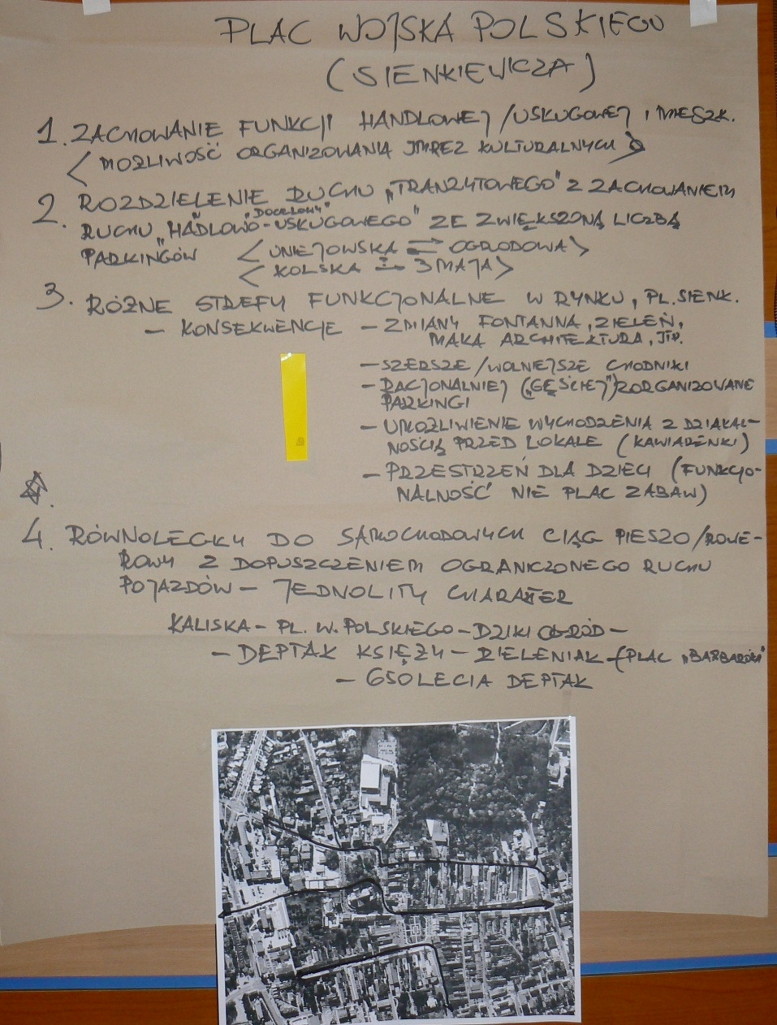 PLAC WOJSKA POLSKIEGO
(SIENKIEWICZA)
1. ZACHOWANIE FUNKCJI HANDLOWEJ/USŁUGOWEJ I MIESZK.
< MOŻLIWOŚĆ ORGANIZOWANIA IMREZ KULTURALNYCH >
2. ROZDZIELENIE RUCHU „TRANZYTOWEGO" Z ZACHOWANIEM
"DOCELOWY"
RUCHU „HADLOWO-USŁUGOWEGO" ZE ZWIĘKSZONĄ LICZBĄ
PARKINGÓW < UNIEJOWSKA ⇄ OGRODOWA >
< KOLSKA ⇄ 3 MAJA >
3. RÓŻNE STREFY FUNKCJONALNE W RYNKU, PL. SIENK.
- KONSEKWENCJE - ZMIANY FONTANNA, ZIELEŃ,
MAŁA ARCHITEKTURA, ITP.
- SZERSZE/WOLNIEJSZE CHODNIKI
- RACJONALNIEJ („GĘŚCIEJ") ZORGANIZOWANE
PARKINGI
- UMOŻLIWIENIE WYCHODZENIA Z DZIAŁAL-
NOŚCIĄ PRZED LOKALE (KAWIARENKI)
- PRZESTRZEŃ DLA DZIECI (FUNKCJO-
NALNOŚĆ NIE PLAC ZABAW)
4. RÓWNOLEGŁY DO SAMOCHODOWYCH CIĄG PIESZO/ROWE-
ROWY Z DOPUSZCZENIEM OGRANICZONEGO RUCHU
POJAZDÓW - JEDNOLITY CHARATER
KALISKA - PL. W. POLSKIEGO - DZIKI OGRÓD -
- DEPTAK KSIĘŻY - ZIELENIAK - (PLAC „BARBAROSA"
- 650LECIA DEPTAK